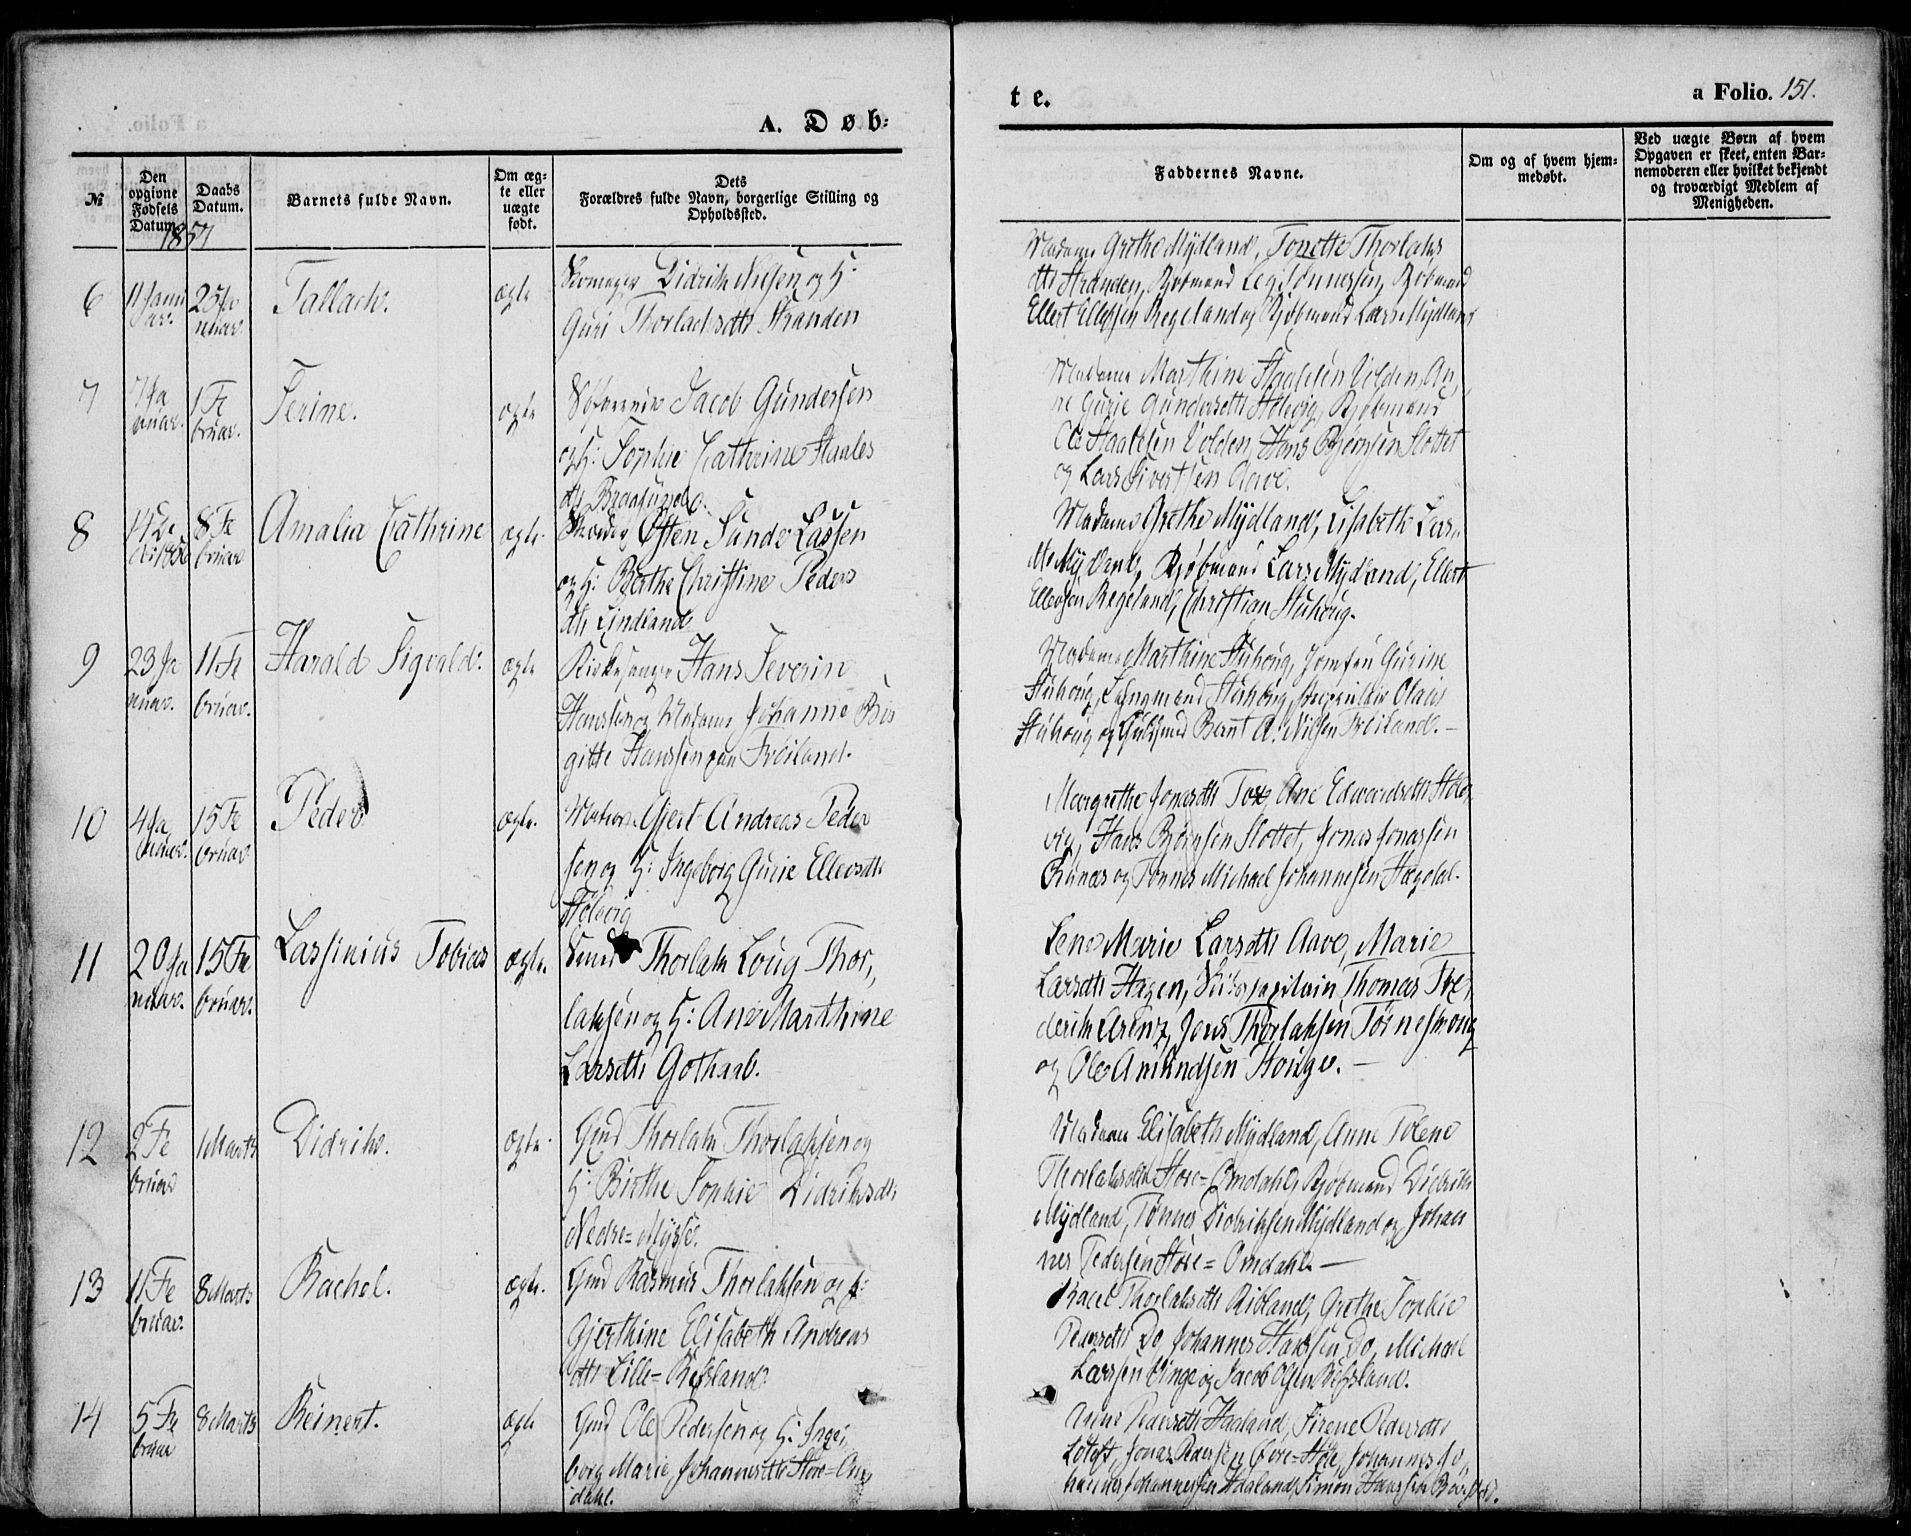 A. Døb-
te.
a Folio. 151.
№
Den opgivne Fødsels Datum.
Daabs Datum.
Barnets fulde Navn.
Om ægte eller uægte født.
Dets Forældres fulde Navn, borgerlige Stilling og Opholdssted.
Faddernes Navne.
Om og af hvem hjemmedøbt.
Ved uægte Børn af hvem Opgaven er skeet, enten Barnemoderen eller hvilket bekjendt og troværdigt Medlem af Menigheden.
1857
6
11 Janu
ar.
25 Ja
nuar.
Tallack.
ægte
Didrik Nilsen og H:
Guri Thorlaksdtr Stranden
Madame Grethe Mydland, Tonette Thorlaks
dtr Stranden, Kjøbmand Tønnessen, Kjøbmand
Ellert Ellefsen Regeland og Kjøbmand Lars Mydland
7
7 Ja
nuar.
1 Fe
bruar.
Serine.
ægte
Jacob Gundersen
og H: Sophie Cathrine Staales
dtr
Madame Marthine Staalesen Volden, An
ne Gurie Gundersdtr Stolsvig, Kjøbmand
Ole Staalesen Volden, Hans Bjørnsen Slottet
og Lars Sivertsen Aave.
8
14 De
cbr 1856
8 Fe
bruar
Amalia Cathrine
ægte.
Skræder Østen Sande Lassen
og H: Berthe Christine Peders
dtr Lindland
Madame Grethe Mydland, Elisabeth Lars
dtr Mydland, Kjøbmand Lars Mydland, Ellert
Ellevsen Regeland, Christian Stuhoug.
9
23 Ja
nuar.
11 Fe
bruar.
Harald Sigvald.
ægte
Kirkesanger Hans Severin
Hanssen og Madame Johanne Bir
gitte Hanssen paa Frøiland.
Madame Marthine Stuhoug, Jomfru Gurine
Stuhoug, Stuhoug, Olaus
Stuhoug og Bernt A. Nilsen Frøiland.-
10
4 Ja
nuar.
15 Fe
bruar
Peder
ægte.
Matros Gjert Andreas Peder
sen og H: Ingeborg Gurie Ellevsdtr
Stolsvig
Margrethe Jonasdtr Ane Edwardsdtr Stols
vig, Hans Bjørnsen Slottet, Jonas Jonassen
og Tønnes Michael Johannesen Hægdal.
11
20 Ja
nuar.
15 Fe
bruar.
Lassinius Tobias
ægte.
Smed Thorlak Loug Thor,
laksen og H: Ane Marthine
Larsdtr Gothaab.
Lene Marie Larsdtr Aave, Marie
Larsdtr Hagen, Thomas Fre,
derik Jens Thorlaksen
og Ole Amundsen Houge. -
12
2 Fe
bruar
1 Marts
Didrik.
ægte.
Gmd Thorlak Thorlaksen og
H: Birthe Sophie Didriksdtr
Nedre=Mysse.
Madame Elisabeth Mydland, Anne Tolene
Thorlaksdtr Store=Omdahl, Kjøbmand Didrik
Mydland, Tønnes Didriksen Mydland og Johan
nes Pedersen Store=Omdahl. -
13
11 Fe
bruar.
8 Marts
Rachel.
ægte.
Gmd Rasmus Thorlaksen og H:
Gjerthine Elisabeth Andreas
dtr Lille=Refsland
Racel Thorlaksdtr Grethe Sophie
Pedersdtr Do, Johannes Do, Michael
Larssen og Jacob Olsen Refsland.
14
5 Fe
bruar
8 Marts
Reinert.
ægte
Gmd Ole Pedersen og H: Inge,
borg Marie Johannesdtr Store=Om
dahl.
Pedersdtr Haaland, Sirene Pedersdtr
Jonas Pedersen Johannes Jo
hannes Johannessen Haaland, Simon Hanssen